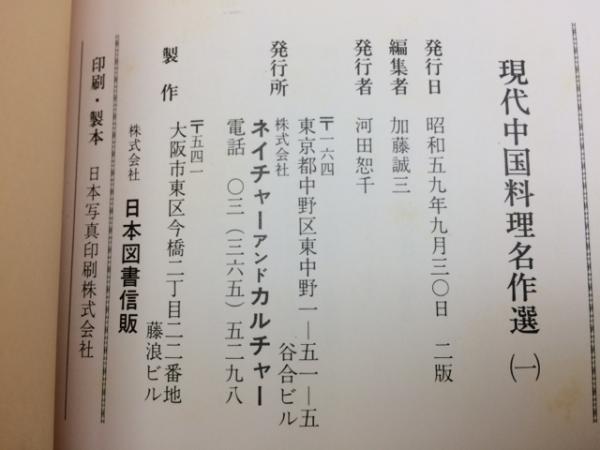 現代中国料理名作選 (一)
発行日 昭和五九年九月三〇日 二版
編集者 加藤誠三
発行者 河田恕千
発行所 〒一六四
東京都中野区東中野一―五一―五
谷合ビル
株式会社 ネイチャーアンドカルチャー
電話 〇三(三六五)五二九八
製作 〒五四一
大阪市東区今橋二丁目二二番地
藤浪ビル
株式会社 日本図書信販
印刷・製本 日本写真印刷株式会社